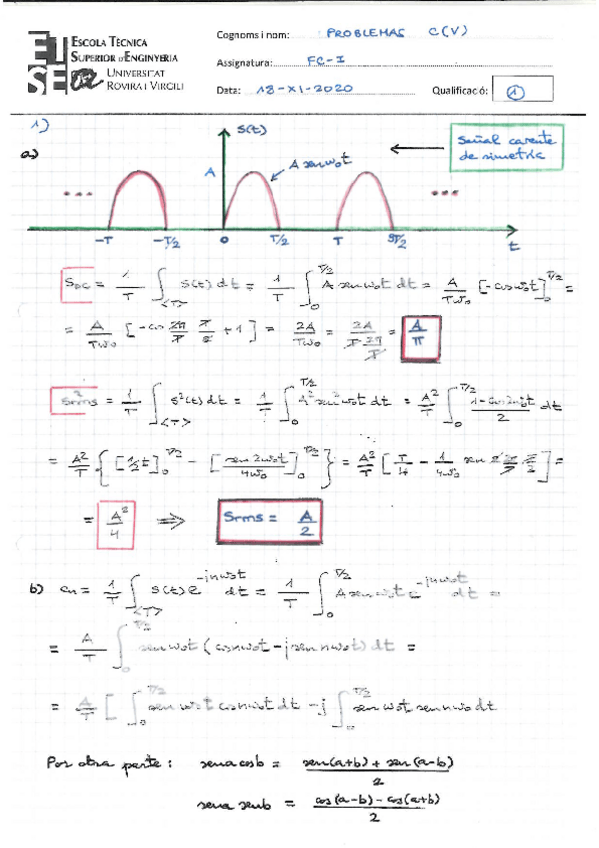 ESCOLA TÈCNICA
SUPERIOR D'ENGINYERIA
UNIVERSITAT
ROVIRA I VIRGILI
ETSE
Cognoms i nom: PROBLEMAS C(V)
Assignatura: FC-I
Data: 18-XI-2020 Qualificació: 1
1)
a) S(t) A A sen ω₀t ← Señal carente
de simetría
... ...
-T -T/2 0 T/2 T 3T/2 t
S_DC = 1/T ∫_<T> s(t) dt = 1/T ∫_0^{T/2} A sen ω₀t dt = A/(Tω₀) [-cos ω₀t]_0^{T/2} =
= A/(Tω₀) [-cos 2π/T T/2 + 1] = 2A/(Tω₀) = 2A/(T 2π/T) = A/π
S²rms = 1/T ∫_<T> s²(t) dt = 1/T ∫_0^{T/2} A² sen² ω₀t dt = A²/T ∫_0^{T/2} (1-cos 2ω₀t)/2 dt
= A²/T { [1/2 t]_0^{T/2} - [sen 2ω₀t/4ω₀]_0^{T/2} } = A²/T [T/4 - 1/4ω₀ sen 2 2π/T T/2] =
= A²/4 ⇒ Srms = A/2
b) cn = 1/T ∫_<T> s(t) e^{-jnω₀t} dt = 1/T ∫_0^{T/2} A sen ω₀t e^{-jnω₀t} dt =
= A/T ∫_0^{T/2} sen ω₀t (cos nω₀t - j sen nω₀t) dt =
= A/T [ ∫_0^{T/2} sen ω₀t cos nω₀t dt - j ∫_0^{T/2} sen ω₀t sen nω₀ dt
Por otra parte: sena cosb = (sen(a+b) + sen(a-b))/2
sena senb = (cos(a-b) - cos(a+b))/2